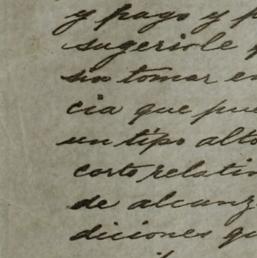 y pago y p
sugeriole
sin tomar en
cia que pue
un tipo alto
corto relativ
de alcanz
diciones qu